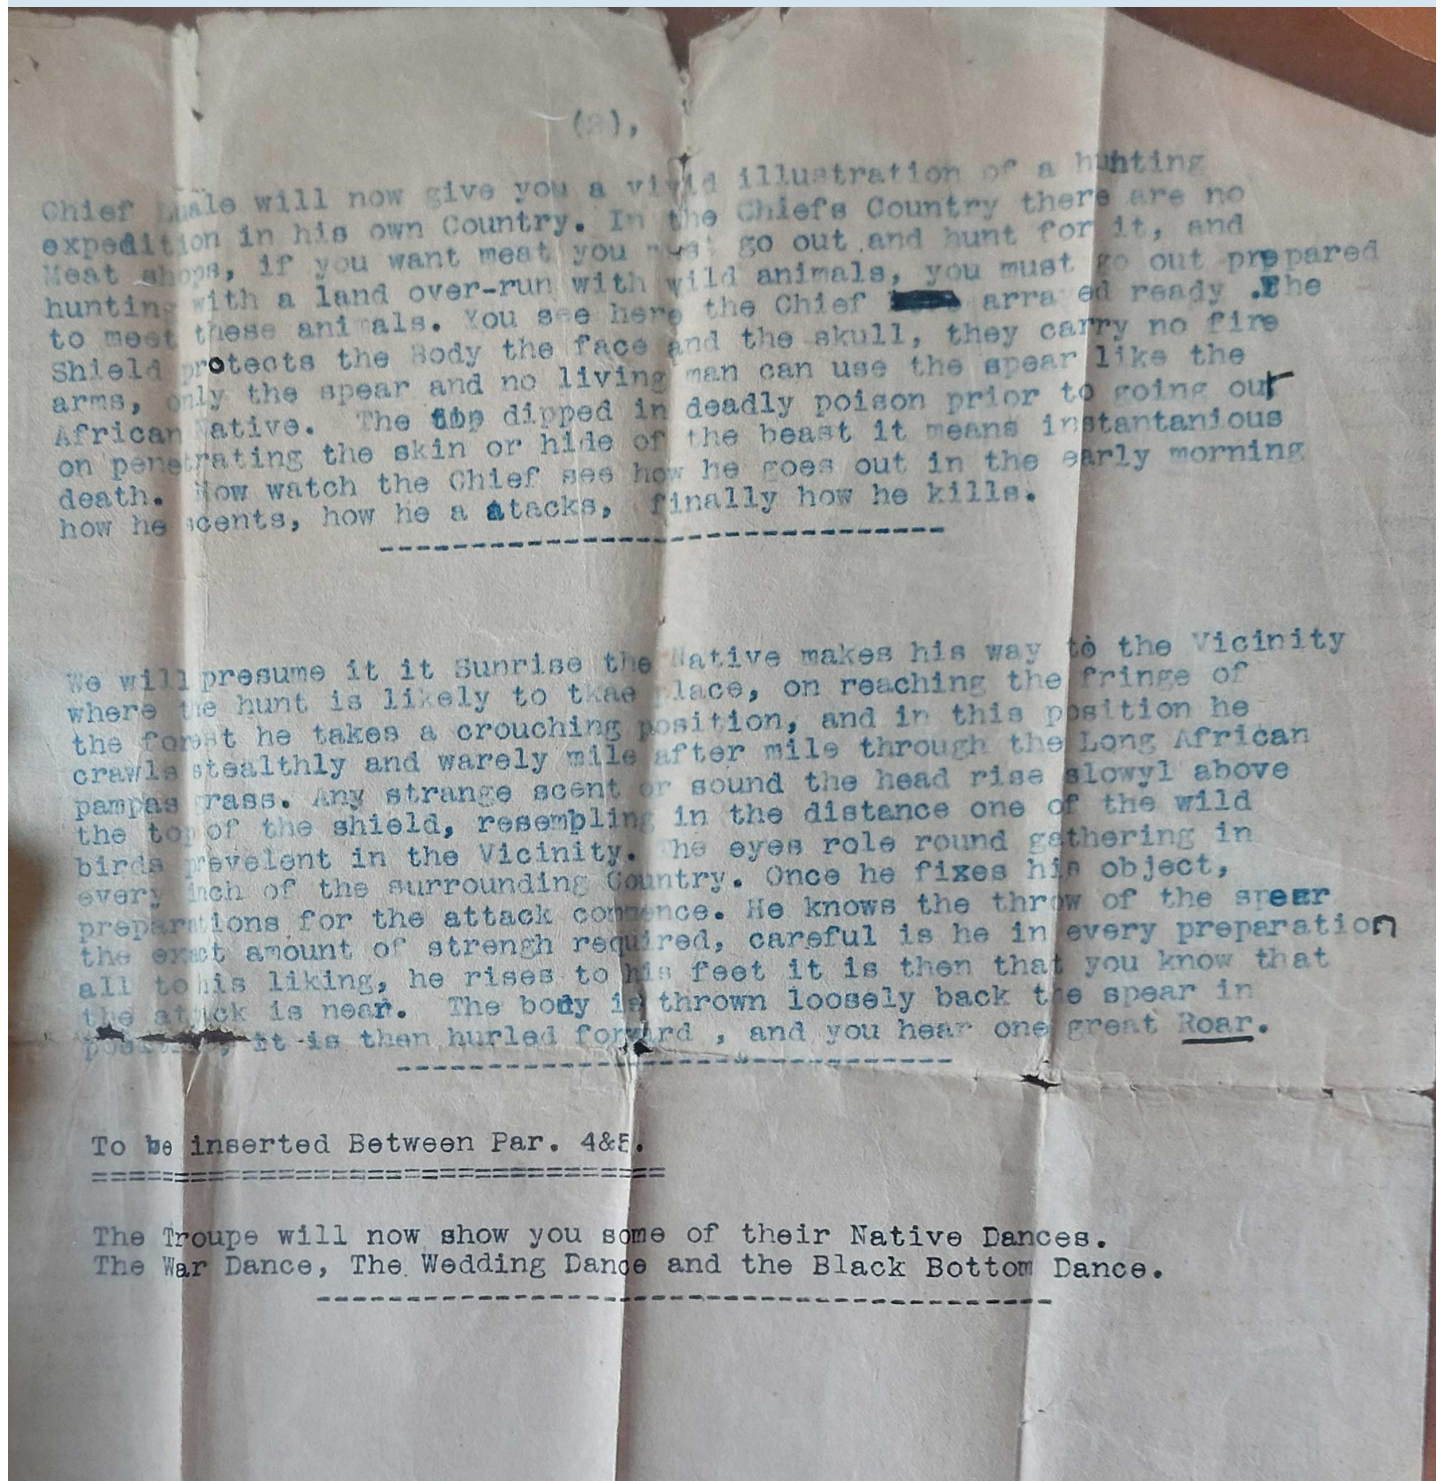 (2),
Chief will now give you a vivid illustration of a huhting
expedition in his own Country. In the Chiefs Country there are no
Meat shops, if you want meat you must go out and hunt for it, and
hunting with a land over-run with wild animals, you must go out prepared
to meet these animals. You see here the Chief arrayed ready .The
Shield protects the Body the face and the skull, they carry no fire
arms, only the spear and no living man can use the spear like the
African Native. The dipped in deadly poison prior to going out
on penetrating the skin or hide of the beast it means instantanious
death. Now watch the Chief see how he goes out in the early morning
how he scents, how he a atacks, finally how he kills.
We will presume it it Sunrise the Native makes his way to the Vicinity
where the hunt is likely to tkae place, on reaching the fringe of
the forest he takes a crouching position, and in this position he
crawls stealthly and warely mile after mile through the Long African
pampas grass. Any strange scent or sound the head rise slowyl above
the top of the shield, resembling in the distance one of the wild
birds prevelent in the Vicinity. The eyes role round gathering in
every inch of the surrounding Country. Once he fixes his object,
preparations for the attack commence. He knows the throw of the spear
the exact amount of strengh required, careful is he in every preparation
all to his liking, he rises to his feet it is then that you know that
the attack is near. The body is thrown loosely back the spear in
position, it is then hurled forward , and you hear one great Roar.
To be inserted Between Par. 4&5.
==================================
The Troupe will now show you some of their Native Dances.
The War Dance, The Wedding Dance and the Black Bottom Dance.